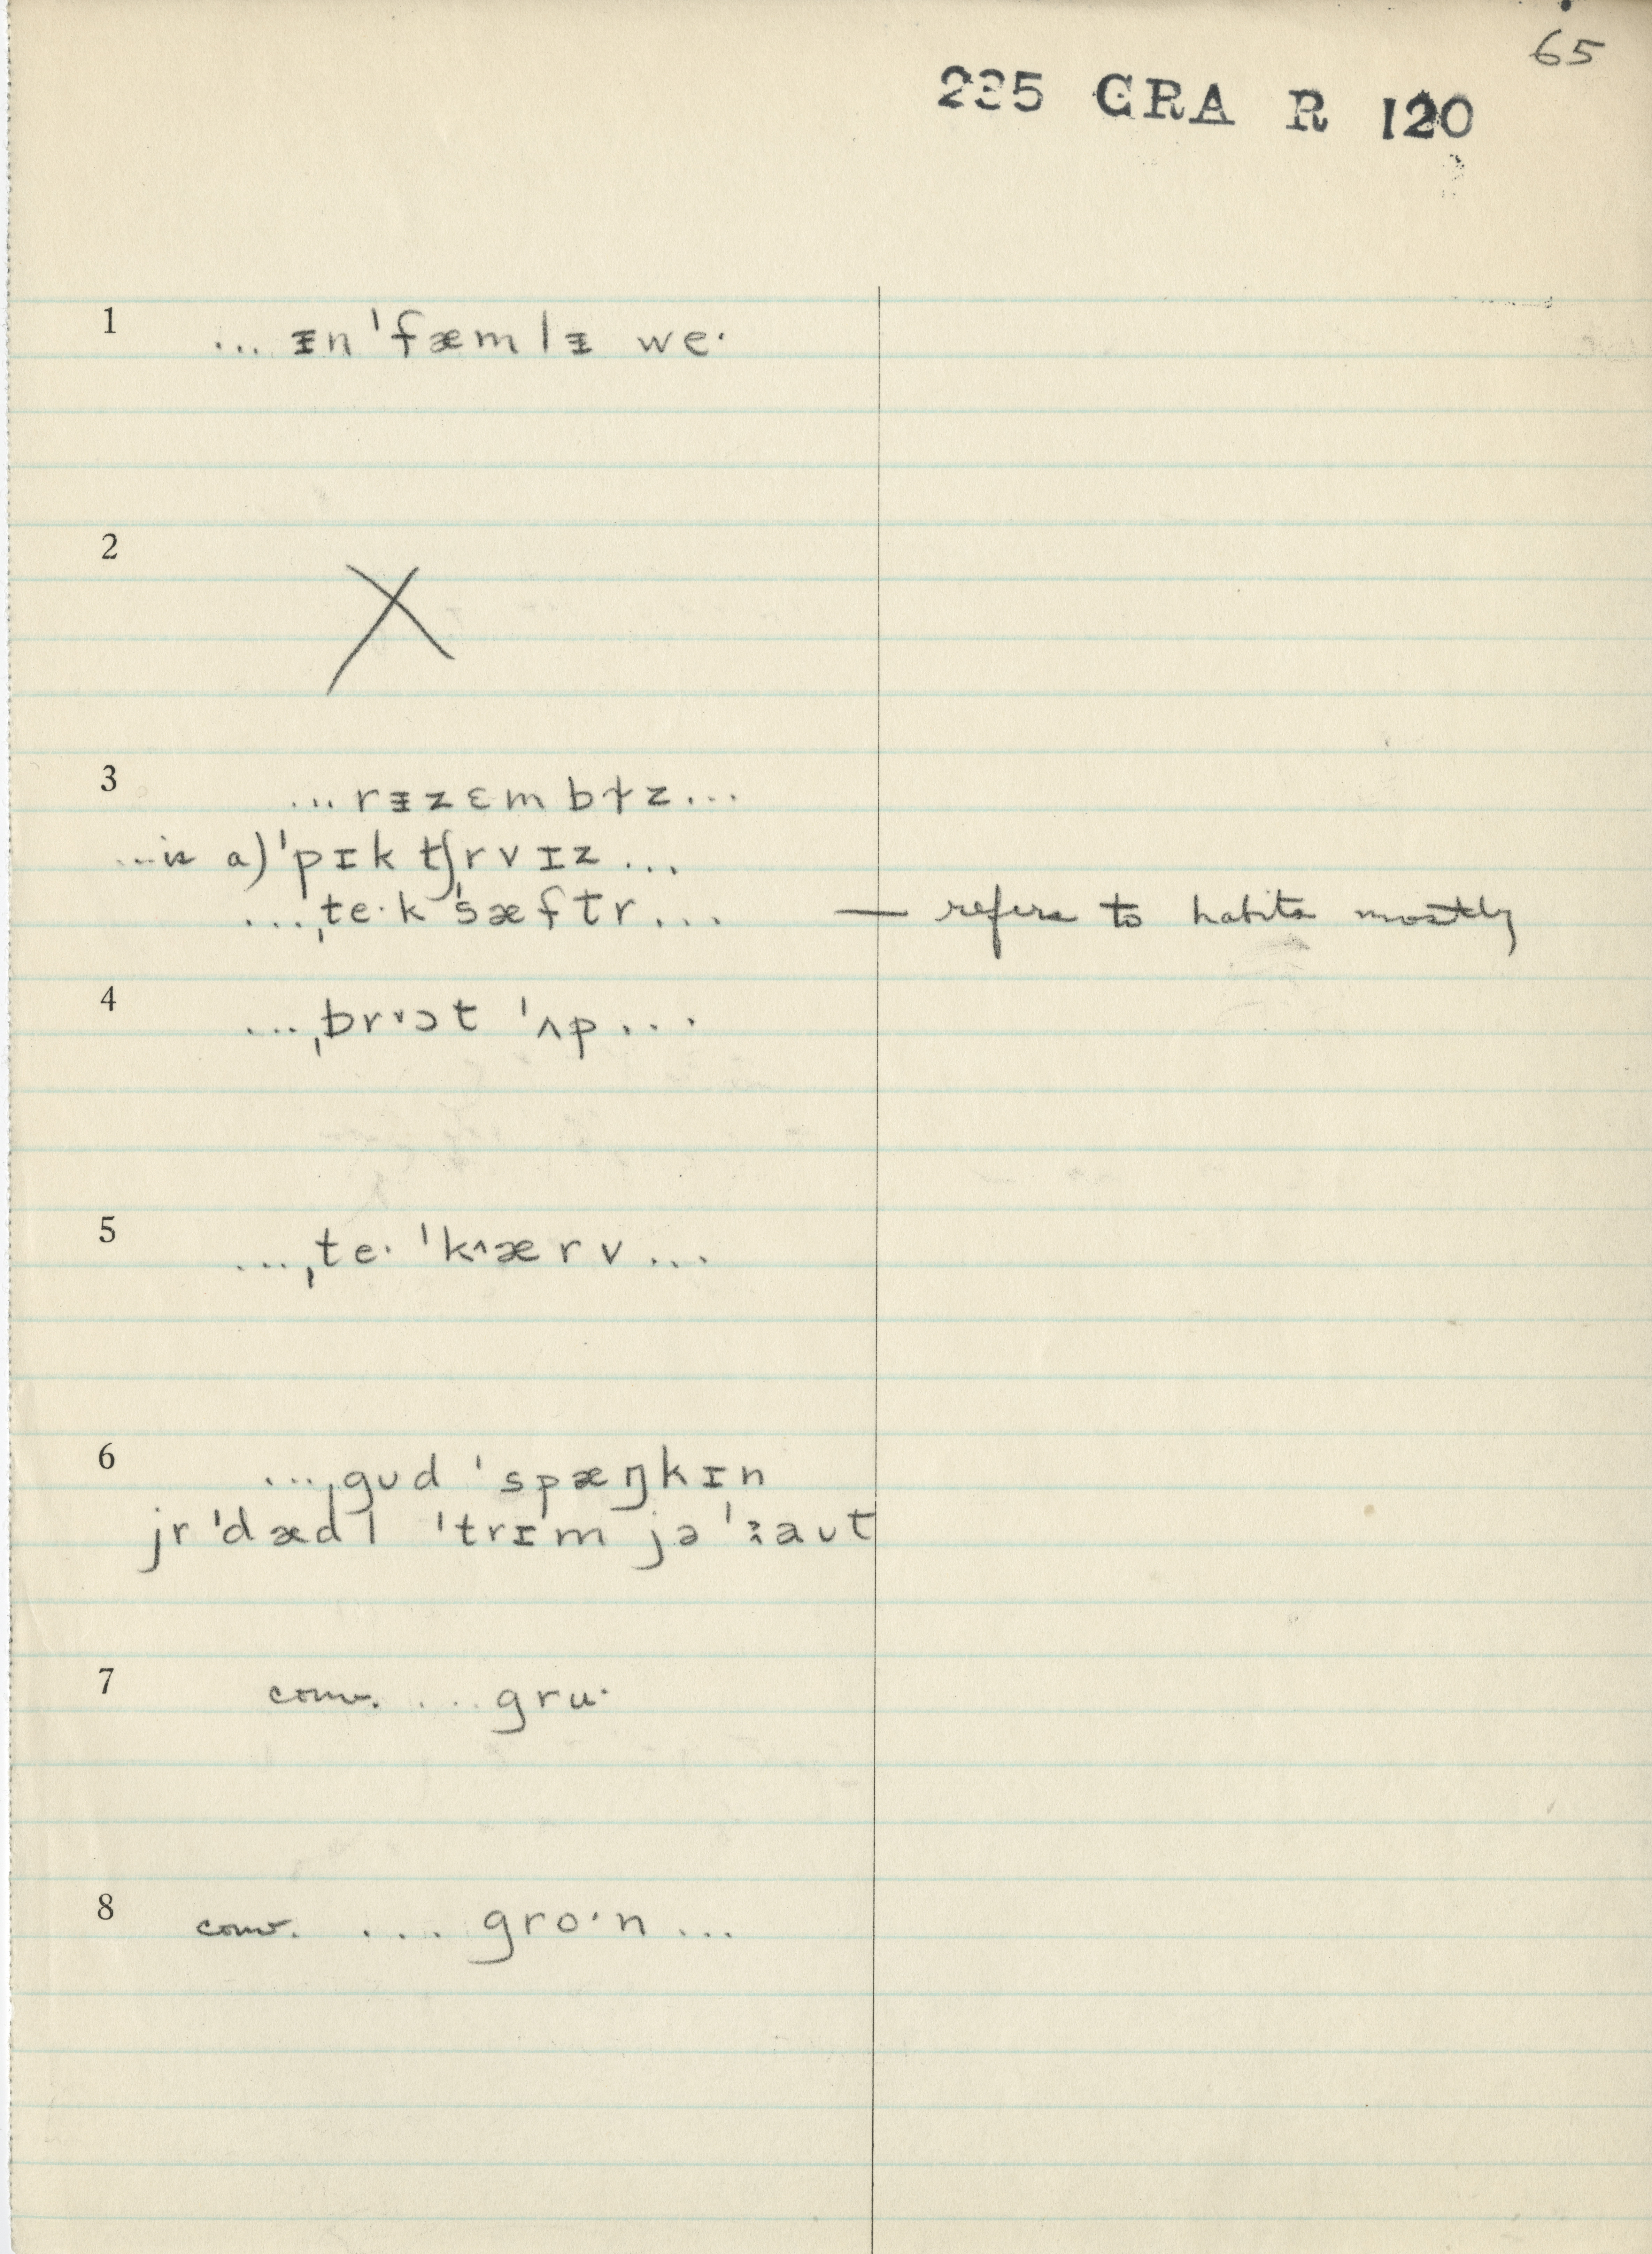 65
235 GRA R 120
1 ... ᵻn ˈfæmlᵻ we·
2 X
3 ... rᵻzɛmbɫz...
...is a) ˈpɪktʃrvɪz...
...ˌte·kˈsæftr... — refers to habits mostly
4 ...ˌbr˅ɔt ˈʌp...
5 ...ˌte· ˈk˄ærv...
6 ...ˌgʊd ˈspæŋkɪn
jr ˈdædl ˈtrɪm jə ˈaʊt
7 conv. ...gru·
8 conv. .... gro·n...